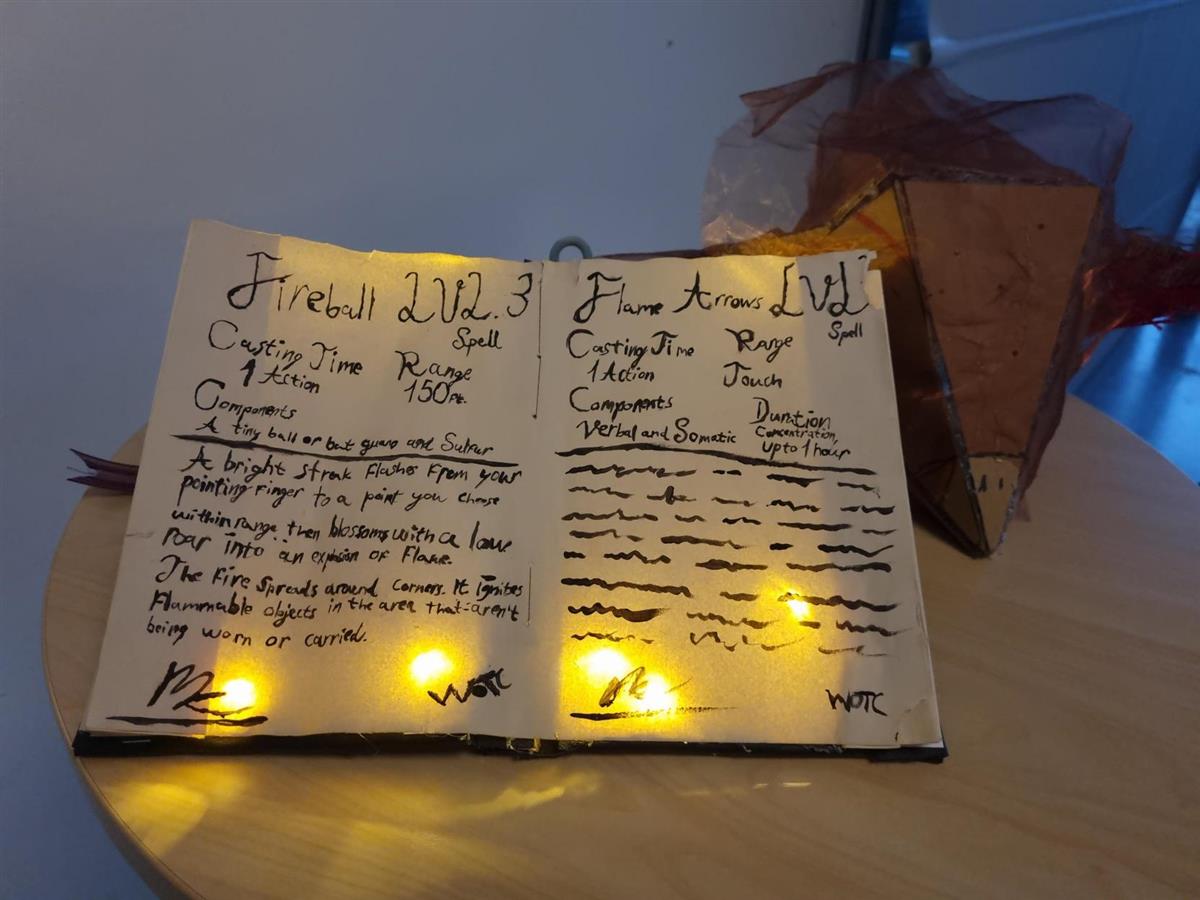 Fireball LVL.3
Spell
Casting Time
1 Action
Range
150ft.
Components
A tiny ball of bat guano and Sulfur
A bright streak flashes from your
pointing finger to a point you choose
within range then blossoms with a low
roar into an explosion of flame.
The fire spreads around corners. It ignites
flammable objects in the area that aren't
being worn or carried.
WOTC
Flame Arrows LVL
Spell
Casting Time
1 Action
Range
Touch
Components
Verbal and Somatic
Duration
Concentration,
up to 1 hour
WOTC